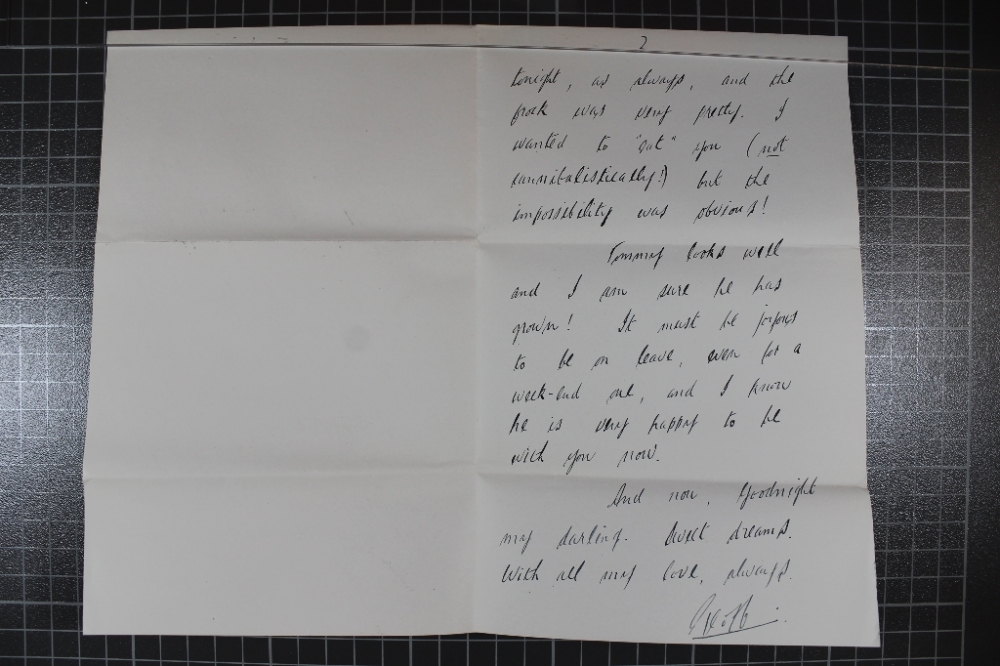 2
tonight, as always, and the
frock was very pretty. I
wanted to "eat" you (not
cannibalistically!) but the
impossibility was obvious!
Tommy looks well
and I am sure he has
grown! It must be joyous
to be on leave, even for a
week-end one, and I know
he is very happy to be
with you now.
And now, Goodnight
my darling. Sweet dreams.
With all my love, always.
Geoff.